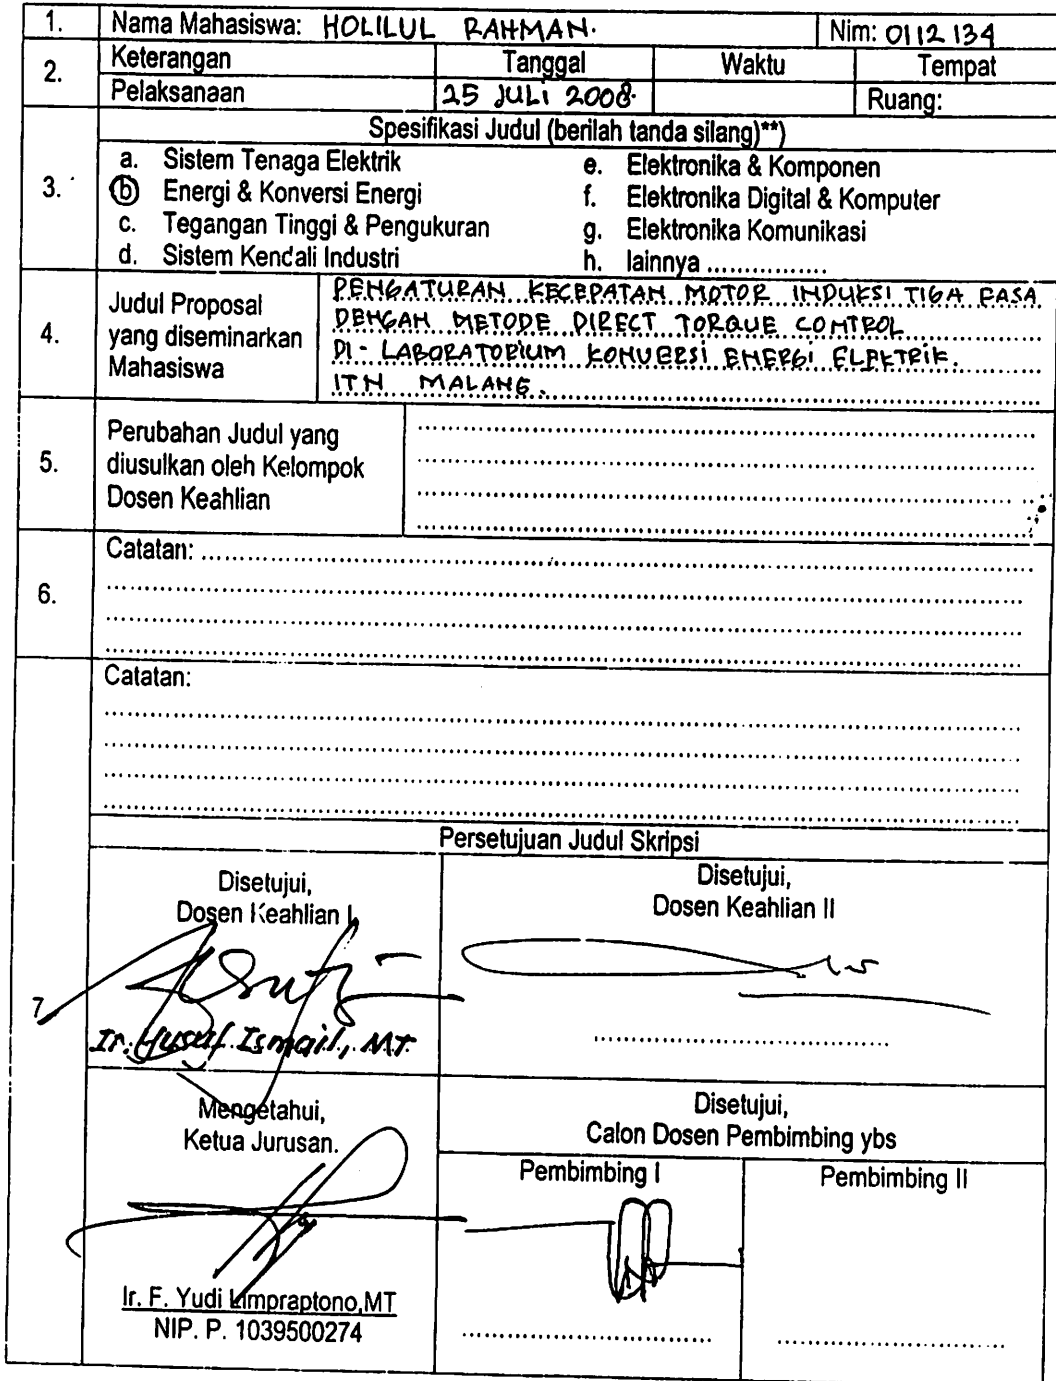 1. Nama Mahasiswa: HOLILUL RAHMAN. Nim: 0112134
2. Keterangan Tanggal Waktu Tempat
Pelaksanaan 25 JULI 2008 Ruang:
3. Spesifikasi Judul (berilah tanda silang)**)
a. Sistem Tenaga Elektrik e. Elektronika & Komponen
b Energi & Konversi Energi f. Elektronika Digital & Komputer
c. Tegangan Tinggi & Pengukuran g. Elektronika Komunikasi
d. Sistem Kendali Industri h. lainnya ................
4. Judul Proposal yang diseminarkan Mahasiswa
PENGATURAN KECEPATAN MOTOR INDUKSI TIGA FASA
DENGAN METODE DIRECT TORQUE CONTROL
DI - LABORATORIUM KONVERSI ENERGI ELEKTRIK.
ITN MALANG.
5. Perubahan Judul yang
diusulkan oleh Kelompok
Dosen Keahlian
6. Catatan:
Catatan:
7
Persetujuan Judul Skripsi
Disetujui,
Dosen Keahlian I
Ir. Yusuf Ismail, MT
Disetujui,
Dosen Keahlian II
Mengetahui,
Ketua Jurusan.
Ir. F. Yudi Limpraptono,MT
NIP. P. 1039500274
Disetujui,
Calon Dosen Pembimbing ybs
Pembimbing I Pembimbing II